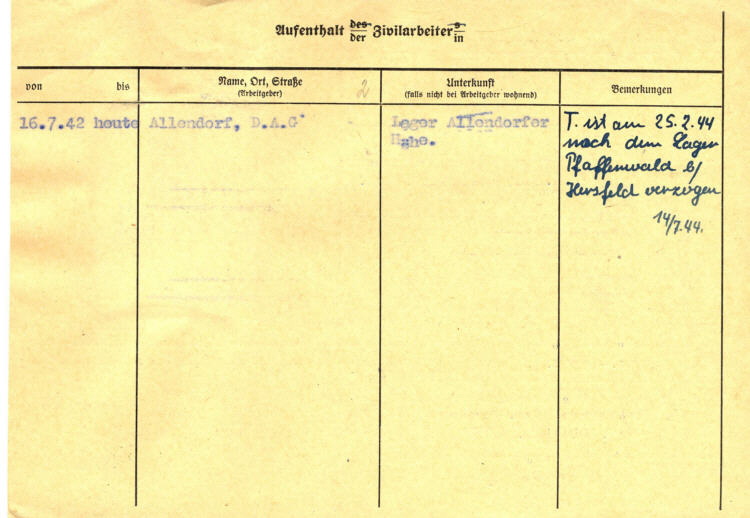 Aufenthalt des der Zivilarbeiters in
von bis
Name, Ort, Straße
(Arbeitgeber)
2
Unterkunft
(falls nicht bei Arbeitgeber wohnend)
Bemerkungen
16.7.42 heute
Allendorf, D.A.G
Lager Allendorfer
Höhe.
T. ist am 25.2.44
nach dem Lager
Pfaffenwald b/
Hersfeld verzogen
14/7.44.